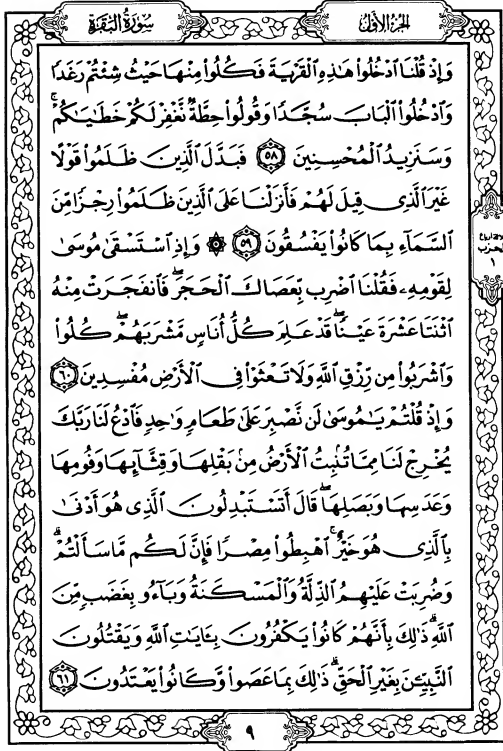 سُورَةُ البَقَرَةِ
الجزء الأول
وَإِذْ قُلْنَا ٱدْخُلُوا۟ هَـٰذِهِ ٱلْقَرْيَةَ فَكُلُوا۟ مِنْهَا حَيْثُ شِئْتُمْ رَغَدًا
وَٱدْخُلُوا۟ ٱلْبَابَ سُجَّدًا وَقُولُوا۟ حِطَّةٌ نَّغْفِرْ لَكُمْ خَطَـٰيَـٰكُمْ ۚ
وَسَنَزِيدُ ٱلْمُحْسِنِينَ ٥٨ فَبَدَّلَ ٱلَّذِينَ ظَلَمُوا۟ قَوْلًا
غَيْرَ ٱلَّذِى قِيلَ لَهُمْ فَأَنزَلْنَا عَلَى ٱلَّذِينَ ظَلَمُوا۟ رِجْزًا مِّنَ
ٱلسَّمَآءِ بِمَا كَانُوا۟ يَفْسُقُونَ ٥٩ ۞ وَإِذِ ٱسْتَسْقَىٰ مُوسَىٰ
لِقَوْمِهِۦ فَقُلْنَا ٱضْرِب بِّعَصَاكَ ٱلْحَجَرَ ۖ فَٱنفَجَرَتْ مِنْهُ
ٱثْنَتَا عَشْرَةَ عَيْنًا ۖ قَدْ عَلِمَ كُلُّ أُنَاسٍ مَّشْرَبَهُمْ ۖ كُلُوا۟
وَٱشْرَبُوا۟ مِن رِّزْقِ ٱللَّهِ وَلَا تَعْثَوْا۟ فِى ٱلْأَرْضِ مُفْسِدِينَ ٦٠
وَإِذْ قُلْتُمْ يَـٰمُوسَىٰ لَن نَّصْبِرَ عَلَىٰ طَعَامٍ وَٰحِدٍ فَٱدْعُ لَنَا رَبَّكَ
يُخْرِجْ لَنَا مِمَّا تُنۢبِتُ ٱلْأَرْضُ مِنۢ بَقْلِهَا وَقِثَّآئِهَا وَفُومِهَا
وَعَدَسِهَا وَبَصَلِهَا ۖ قَالَ أَتَسْتَبْدِلُونَ ٱلَّذِى هُوَ أَدْنَىٰ
بِٱلَّذِى هُوَ خَيْرٌ ۚ ٱهْبِطُوا۟ مِصْرًا فَإِنَّ لَكُم مَّا سَأَلْتُمْ ۗ
وَضُرِبَتْ عَلَيْهِمُ ٱلذِّلَّةُ وَٱلْمَسْكَنَةُ وَبَآءُو بِغَضَبٍ مِّنَ
ٱللَّهِ ۗ ذَٰلِكَ بِأَنَّهُمْ كَانُوا۟ يَكْفُرُونَ بِـَٔايَـٰتِ ٱللَّهِ وَيَقْتُلُونَ
ٱلنَّبِيِّـۧنَ بِغَيْرِ ٱلْحَقِّ ۗ ذَٰلِكَ بِمَا عَصَوا۟ وَّكَانُوا۟ يَعْتَدُونَ ٦١
٩